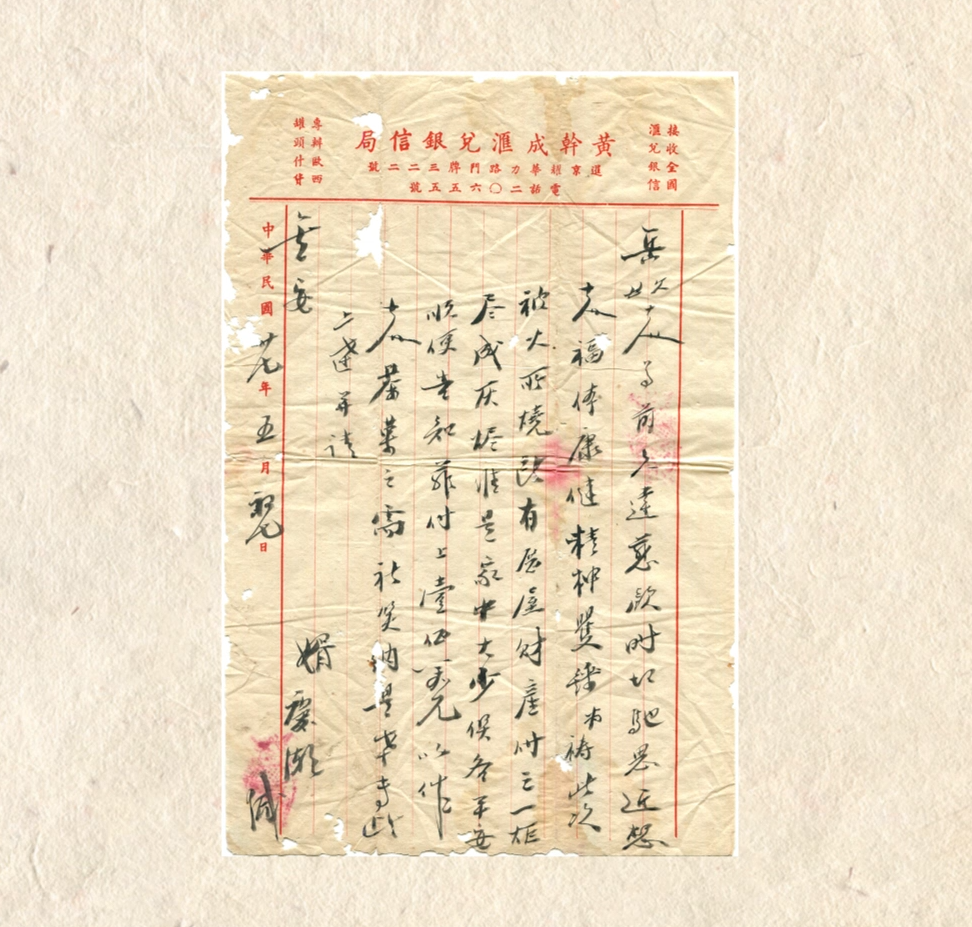 接收全國
匯兌銀信
黃幹成滙兌銀信局
暹京耀華力路門牌三二二號
電話二〇六五五號
專辦歐西
罐頭什貨
岳父母大人尊前久違慈顏時切馳思近想
大人福体康健精神為禱此次
被火所燒所有居屋財產付之一炬
尽成灰燼惟是家中大少俱各平安
順便告知茲付上元以作
大人茶菓之需祈笑納是幸專此
上達並請
金安
婿慶潮緘
中華民國年五月日